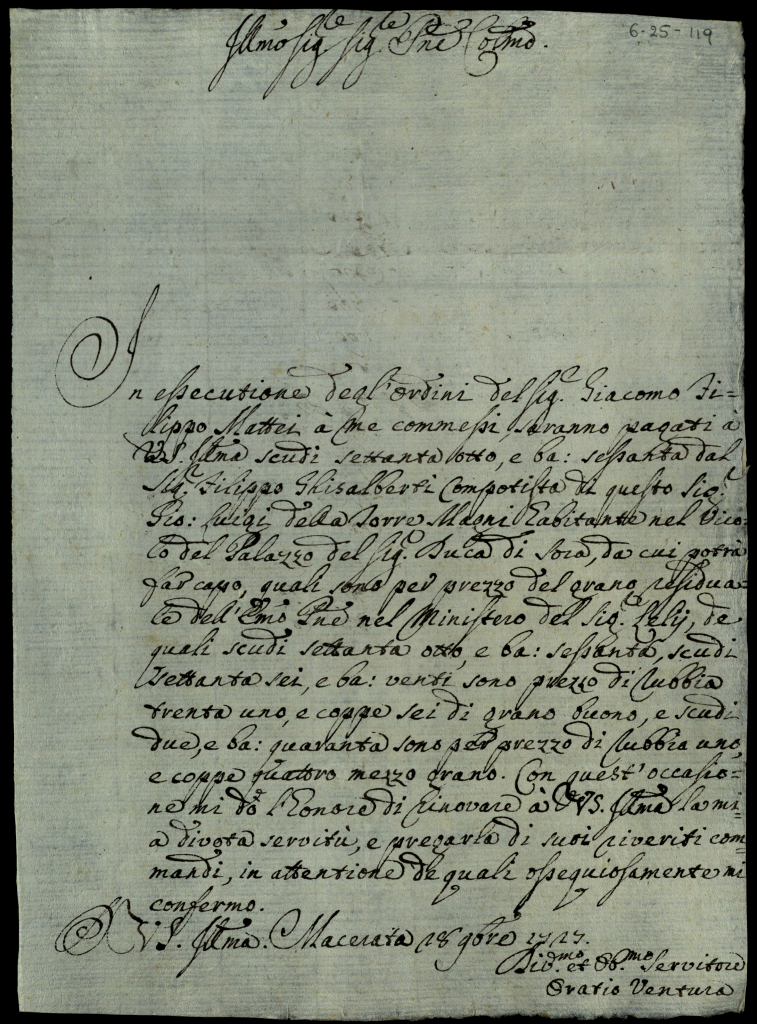 Illmo Sig.re Sig.re Pne Colmo.
6-25-119
In essecutione degl'ordini del Sig.e Giacomo Fi=
lippo Mattei à me commessi, saranno pagati à
VS. Illma scudi settanta otto, e ba: sessanta dal
Sig.e Filippo Ghisalberti Compotista di questo Sig.r
Gio: Luigi della Torre Magni habitante nel Vico=
lo del Palazzo del Sig.e Duca di Sora, da cui potrà
far capo, quali sono per prezzo del grano residua=
to dell'Emo Pne nel Ministero del Sig.e Lelij, de
quali scudi settanta otto, e ba: sessanta, scudi
settanta sei, e ba: venti sono prezzo di Rubbia
trenta uno, e coppe sei di grano buono, e scudi
due, e ba: quaranta sono per prezzo di Rubbia uno,
e coppe quattro mezzo grano. Con quest'occasio=
ne mi dò l'honore di rinovare à VS. Illma la mi=
a divota servitù, e pregarla di suoi riveriti com=
mandi, in attentione de quali ossequiosamente mi
confermo.
Di VS. Illma. Macerata 18 9bre 1717.
Div.mo et Ob.mo Servitore
Oratio Ventura